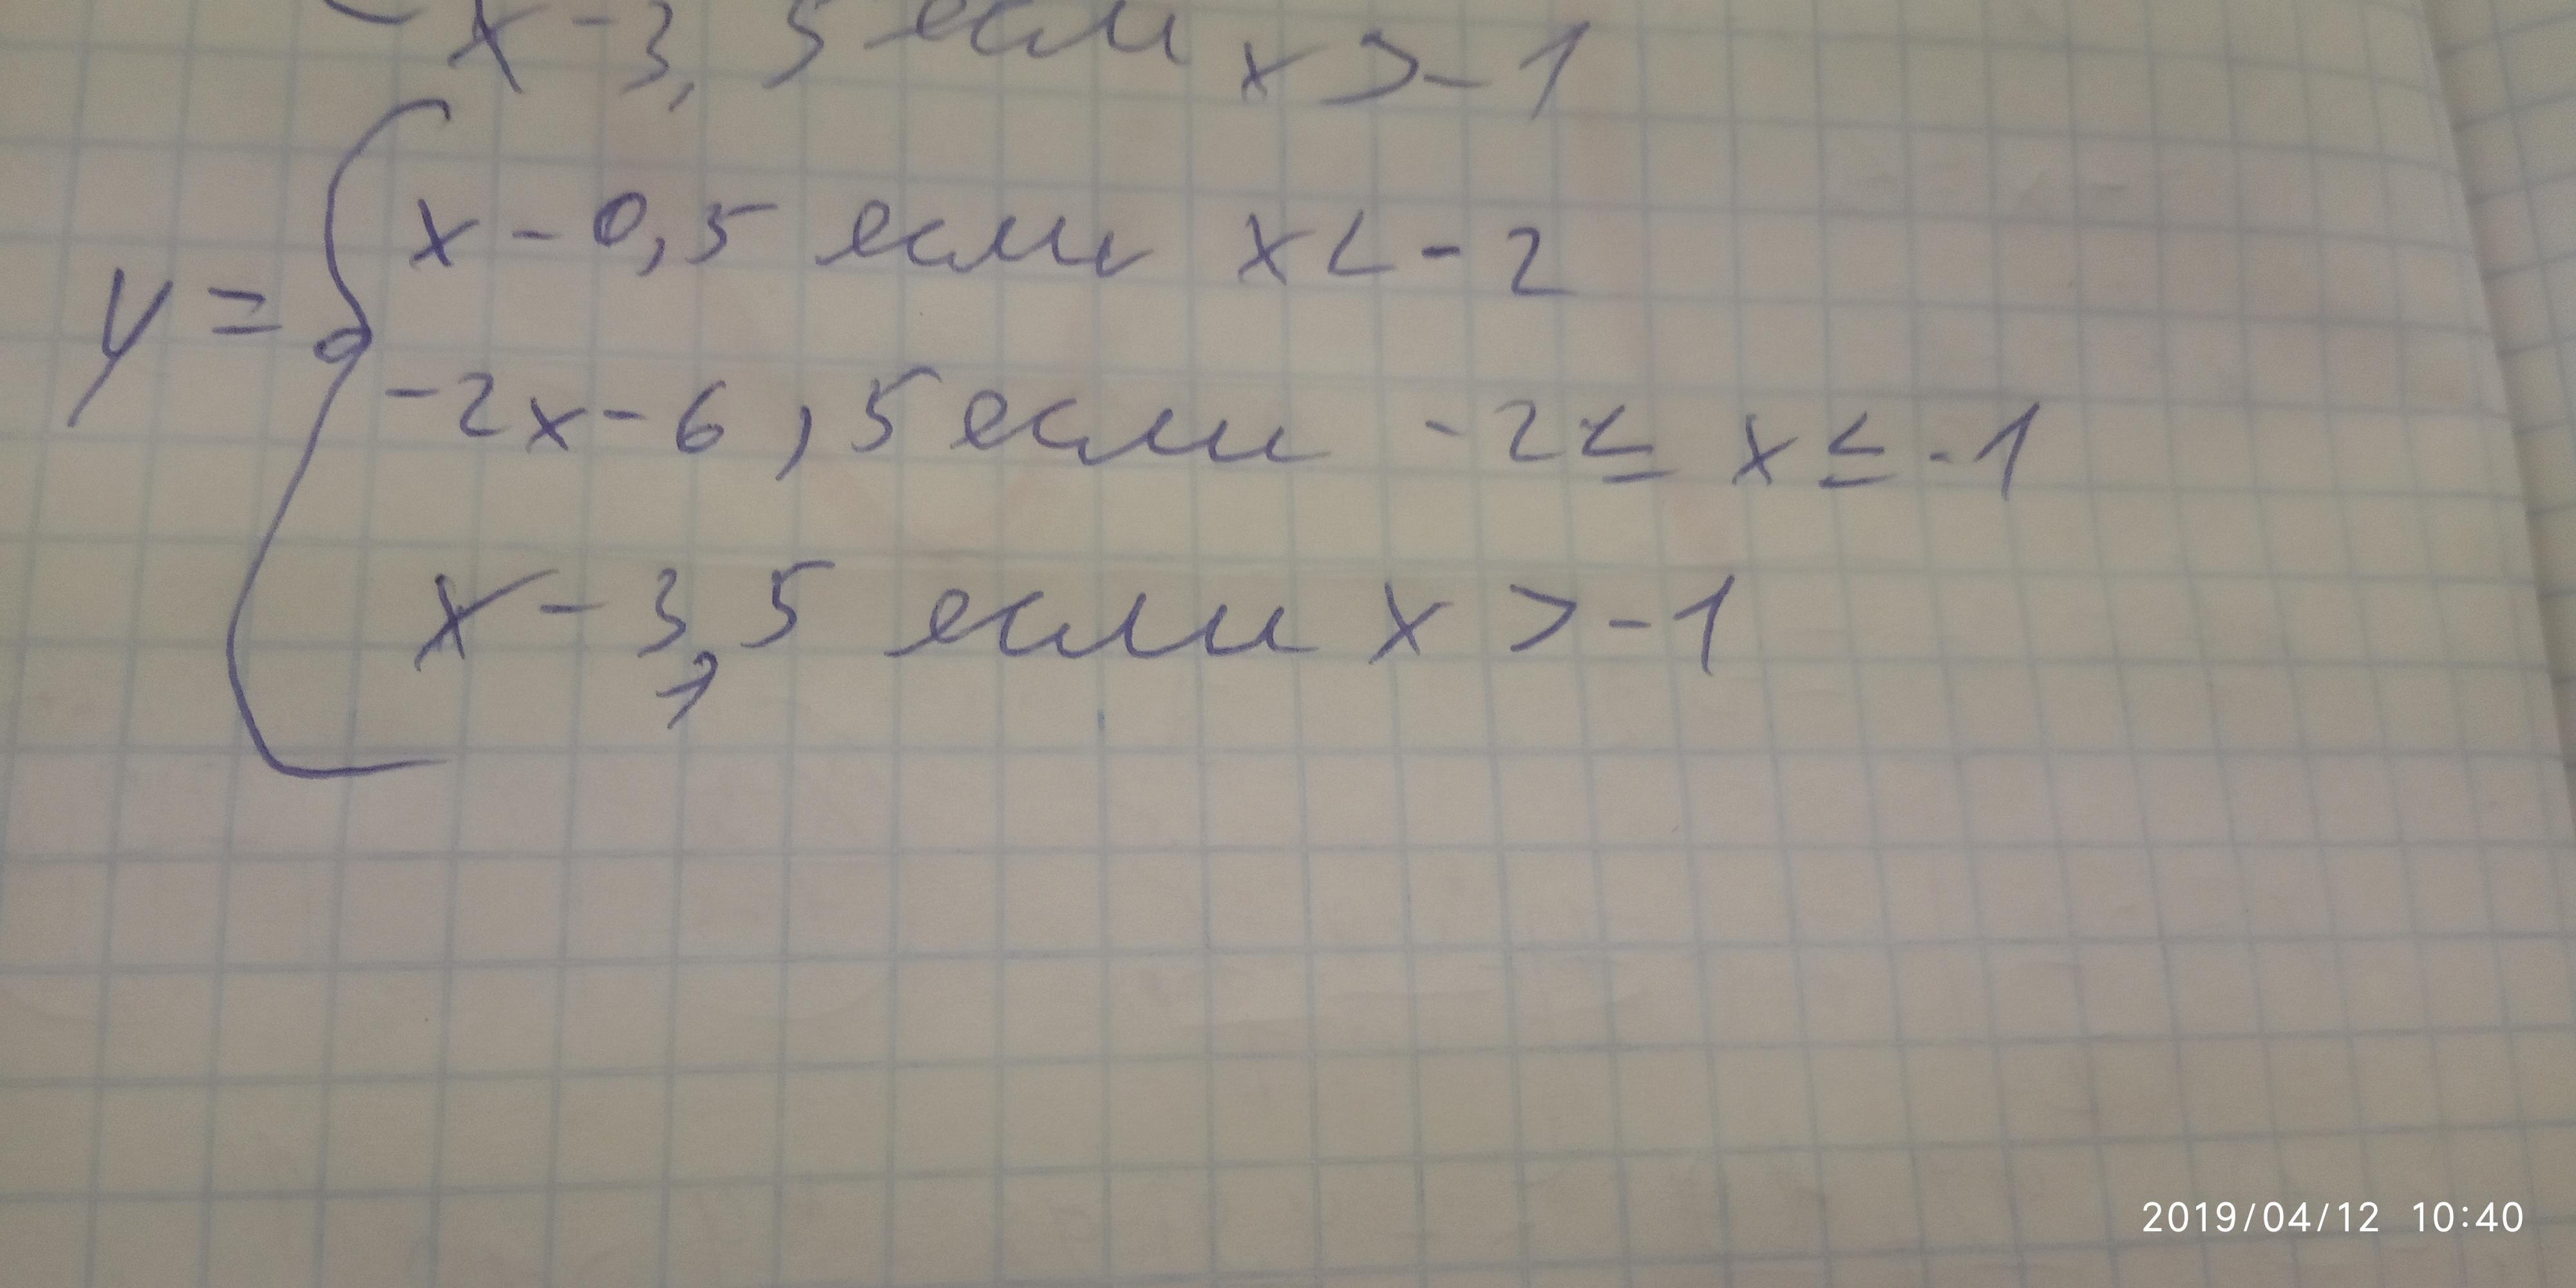 x - 3,5 если x > -1
x - 0,5 если x < -2
y =
-2x - 6,5 если -2 ≤ x ≤ -1
x - 3,5 если x > -1
2019/04/12 10:40